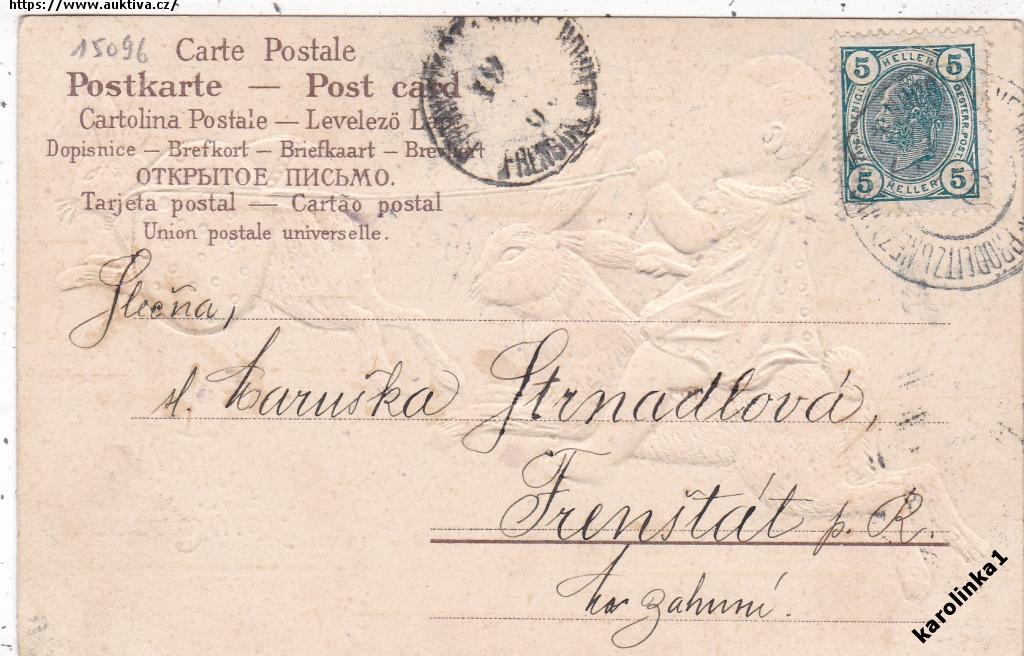 https://www.auktiva.cz/
15096
Carte Postale
Postkarte — Post card
Cartolina Postale — Levelező
Dopisnice — Brefkort — Briefkaart — Brevkort
ОТКРЫТОЕ ПИСЬМО.
Tarjeta postal — Cartão postal
Union postale universelle.
5 HELLER 5
ÖSTERR. POST
5 HELLER 5
Slečna,
sl. Maruška Strnadlová,
Frenštát p. R.
karolinka1